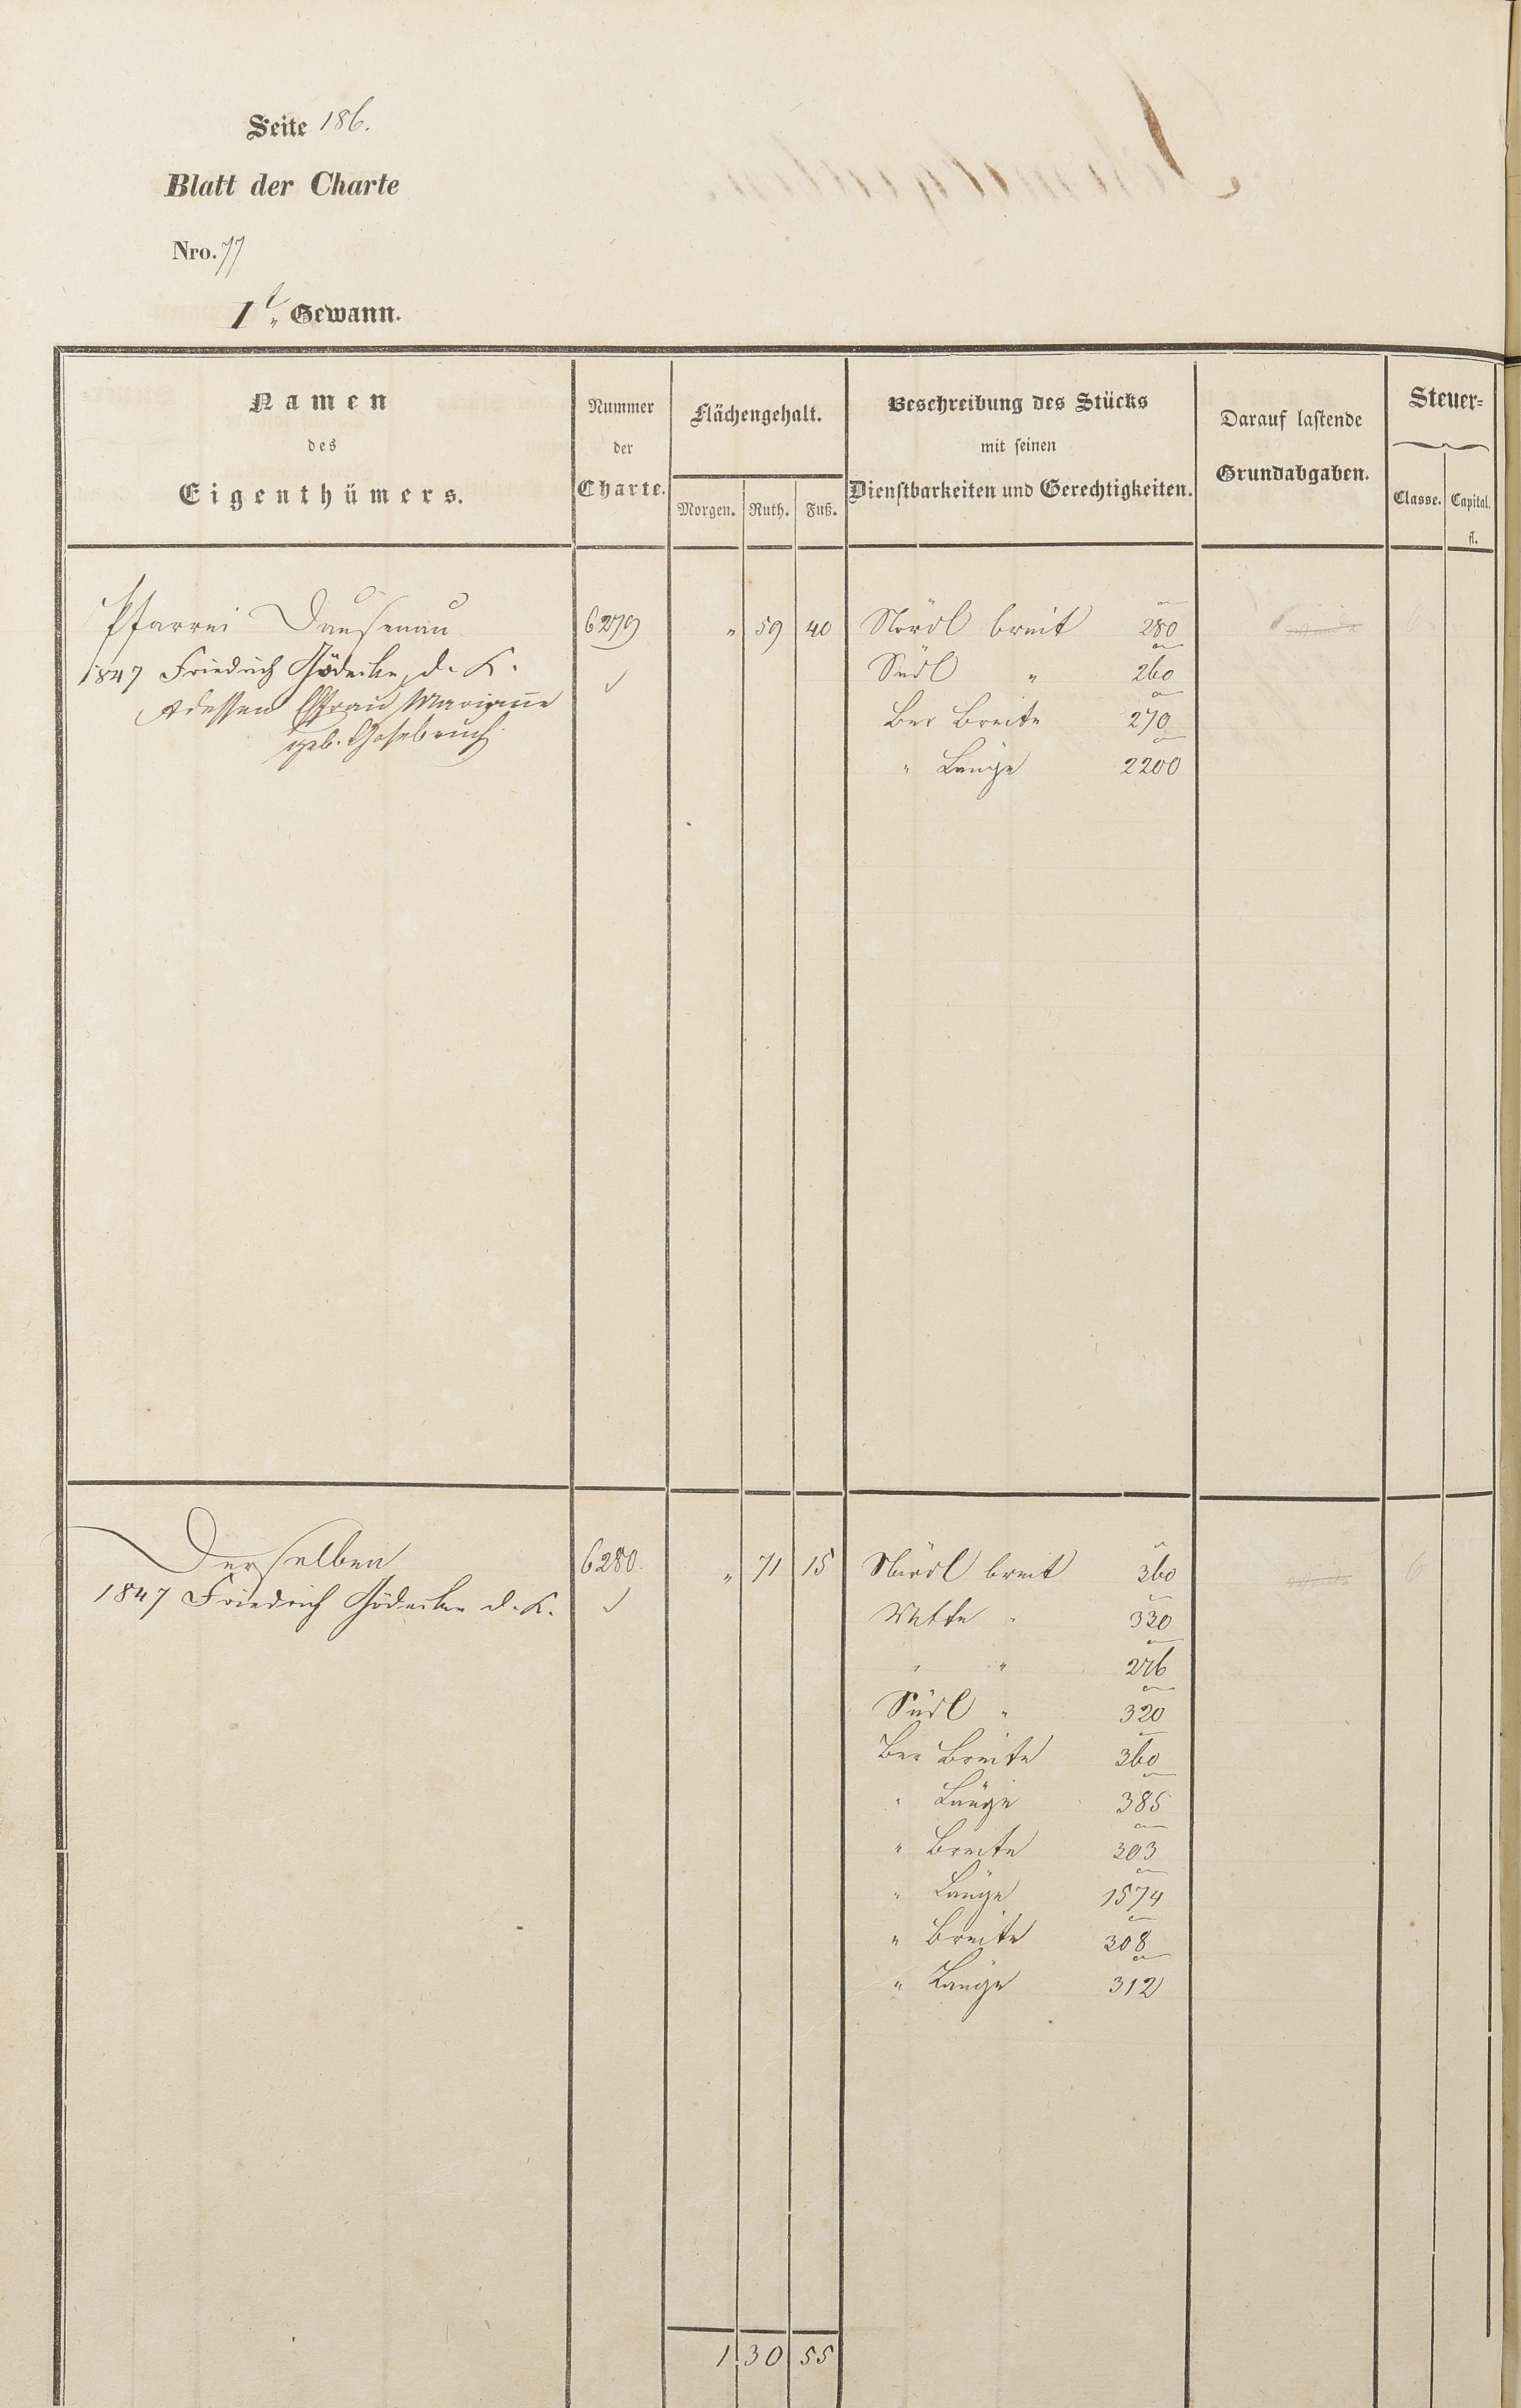 Seite 186.
Blatt der Charte
Nro. 77
1t Gewann.
Namen
des
Eigenthümers.
Nummer
der
Charte.
Flächengehalt.
Morgen. Ruth. Fuß.
Beschreibung des Stücks
mit seinen
Dienstbarkeiten und Gerechtigkeiten.
Darauf lastende
Grundabgaben.
Steuer=
Classe. Capital.
fl.
Pfarrei Dausenau 6279 " 59 40 Nördl breit 280
1847 Friedrich Gödecke, d. K. Südl " 260
dessen Ehfrau Marianne Ber Breite 270
geb. Gosebruch " Länge 2200
Derselben 6280. " 71 15 Nördl breit 360 6
1847 Friedrich Gödecke d. K. Mitte " 330
" " 276
Südl " 320
Ber Breite 360
" Länge 385
" Breite 303
" Länge 1574
" Breite 308
" Länge 312
1 30 55